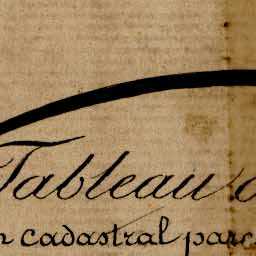 Tableau d
n cadastral parc